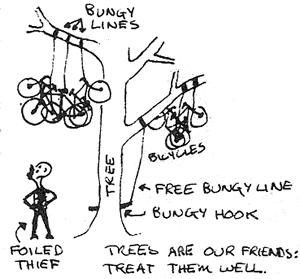 BUNGY
LINES
TREE
BICYCLES
FREE BUNGY LINE
BUNGY HOOK
FOILED
THIEF
TREES ARE OUR FRIENDS:
TREAT THEM WELL.